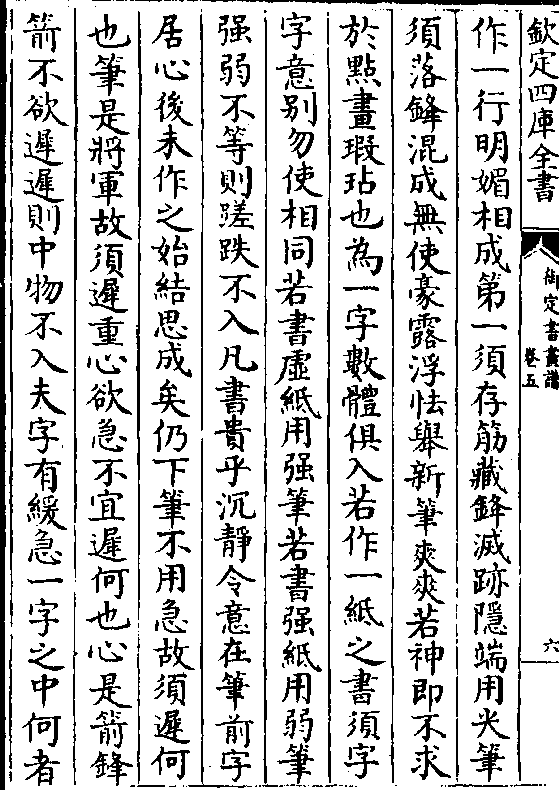 欽定四庫全書
御定書畫譜
卷五
六
作一行明媚相成第一須存筋藏鋒滅跡隱端用尖筆
須落鋒混成無使豪露浮怯舉新筆爽爽若神即不求
於點畫瑕玷也為一字數體俱入若作一紙之書須字
字意别勿使相同若書虛紙用强筆若書强紙用弱筆
强弱不等則蹉跌不入凡書貴乎沉靜令意在筆前字
居心後未作之始結思成矣仍下筆不用急故須遲何
也筆是將軍故須遲重心欲急不宜遲何也心是箭鋒
箭不欲遲遲則中物不入夫字有緩急一字之中何者